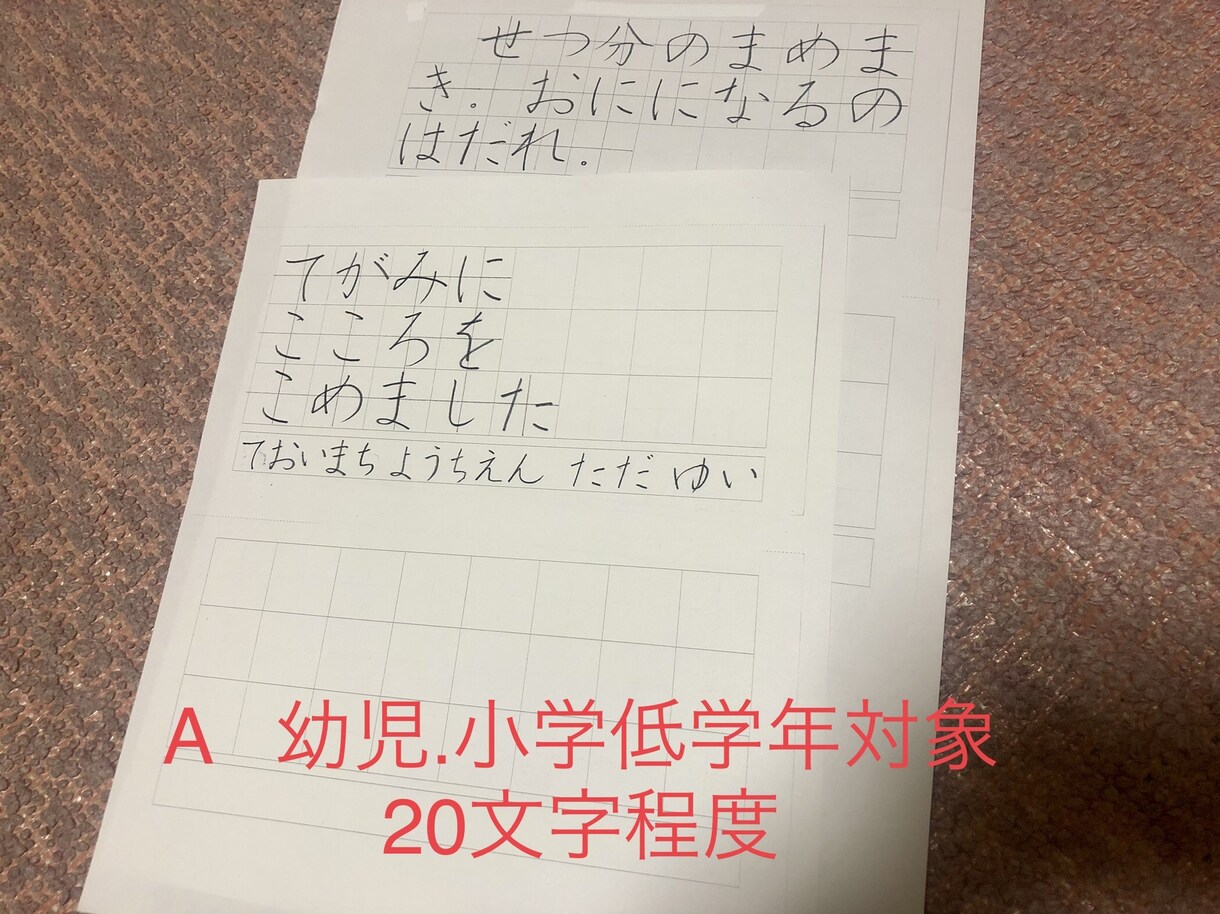 せつ分のまめま
き。おにになるの
はだれ。
てがみに
こころを
こめました
ておいまちようちえん ただ ゆい
A 幼児.小学低学年対象
20文字程度